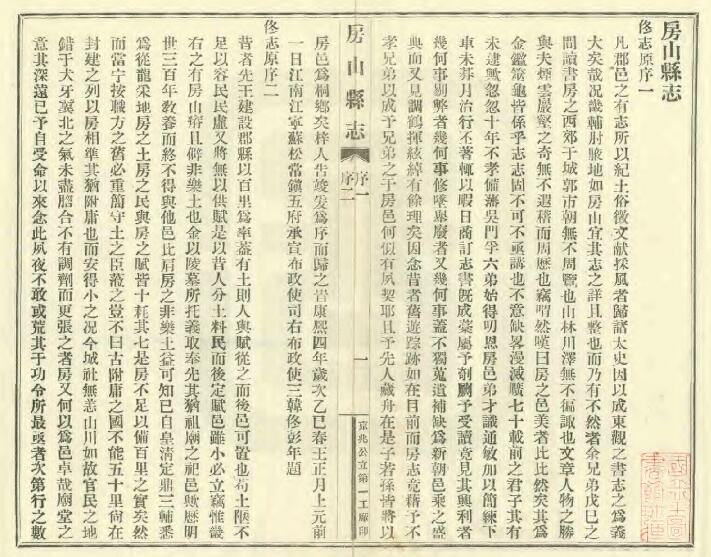 房山縣志
修志原序一
凡郡邑之有志所以紀土俗徵文献採風者歸諸太史因以成東觀之書志之為義
大矣哉况畿輔肘腋地如房山宜其志之詳且整也而乃有不然者余兄弟戊巳之
間讀書房之西郊于城郭市朝無不周覽也山林川澤無不徧諏也文章人物之勝
與夫煙雲巖壑之奇無不遐稽而周歷也竊喟然嘆曰房之邑美者比比然矣其為
金鑑蓍龜皆係乎志志固不可不亟講也不意缺畧漫滅廣七十載前之君子其有
未逮歟忽忽十年不孝備藩吳門乎六弟始得叨恩房邑弟才識通敏加以簡練下
車未朞月治行丕著輒以暇日商訂志書既成藁屬予剞劂予受讀竟見其興利者
幾何事剔弊者幾何事修墜舉廢者又幾何事蓋不獨蒐遺補缺為新朝邑乘之盛
典而又見調鶴揮絃綽有餘理矣因念昔者舊遊踪跡如在目前而房志竟藉予不
孝兄弟以成予兄弟之于房邑何似有夙契耶且予先人藏舟在是子若孫皆將以
房山縣志
序一
序二
一
京兆公立第一工廠印
房邑為桐鄉矣梓人告竣爰為序而歸之旹康熙四年歲次乙巳春王正月上元前
一日江南江寧蘇松常鎮五府承宣布政使司右布政使三韓佟彭年題
修志原序二
昔者先王建設郡縣以百里為率蓋有土則人與賦從之而後邑可置也苟土陿不
足以容民民虛又將無以供賦是以昔人分土料民而後定賦邑雖小必立竊惟畿
右之有房山瘠且僻非樂土也金以陵墓所托義取奉先其猶祖廟之祀邑歟歷明
世三百年教養而終不得與他邑比肩房之非樂土益可知已自皇清定鼎三輔悉
為從龍采地房之土房之民與房之賦皆十耗其七是房不足以備百里之實矣然
而當宁按職方之舊必重簡守土之臣蒞之豈不曰古附庸之國不能五十里尚在
封建之列以房相準其猶附庸也而安得小之况今城祉無恙山川如故官民之地
錯于犬牙冀北之氣未盡脗合不有調劑而更張之者房又何以為邑卓哉廟堂之
意其深遠已予自受命以來念此夙夜不敢或荒其于功令所最亟者次第行之數